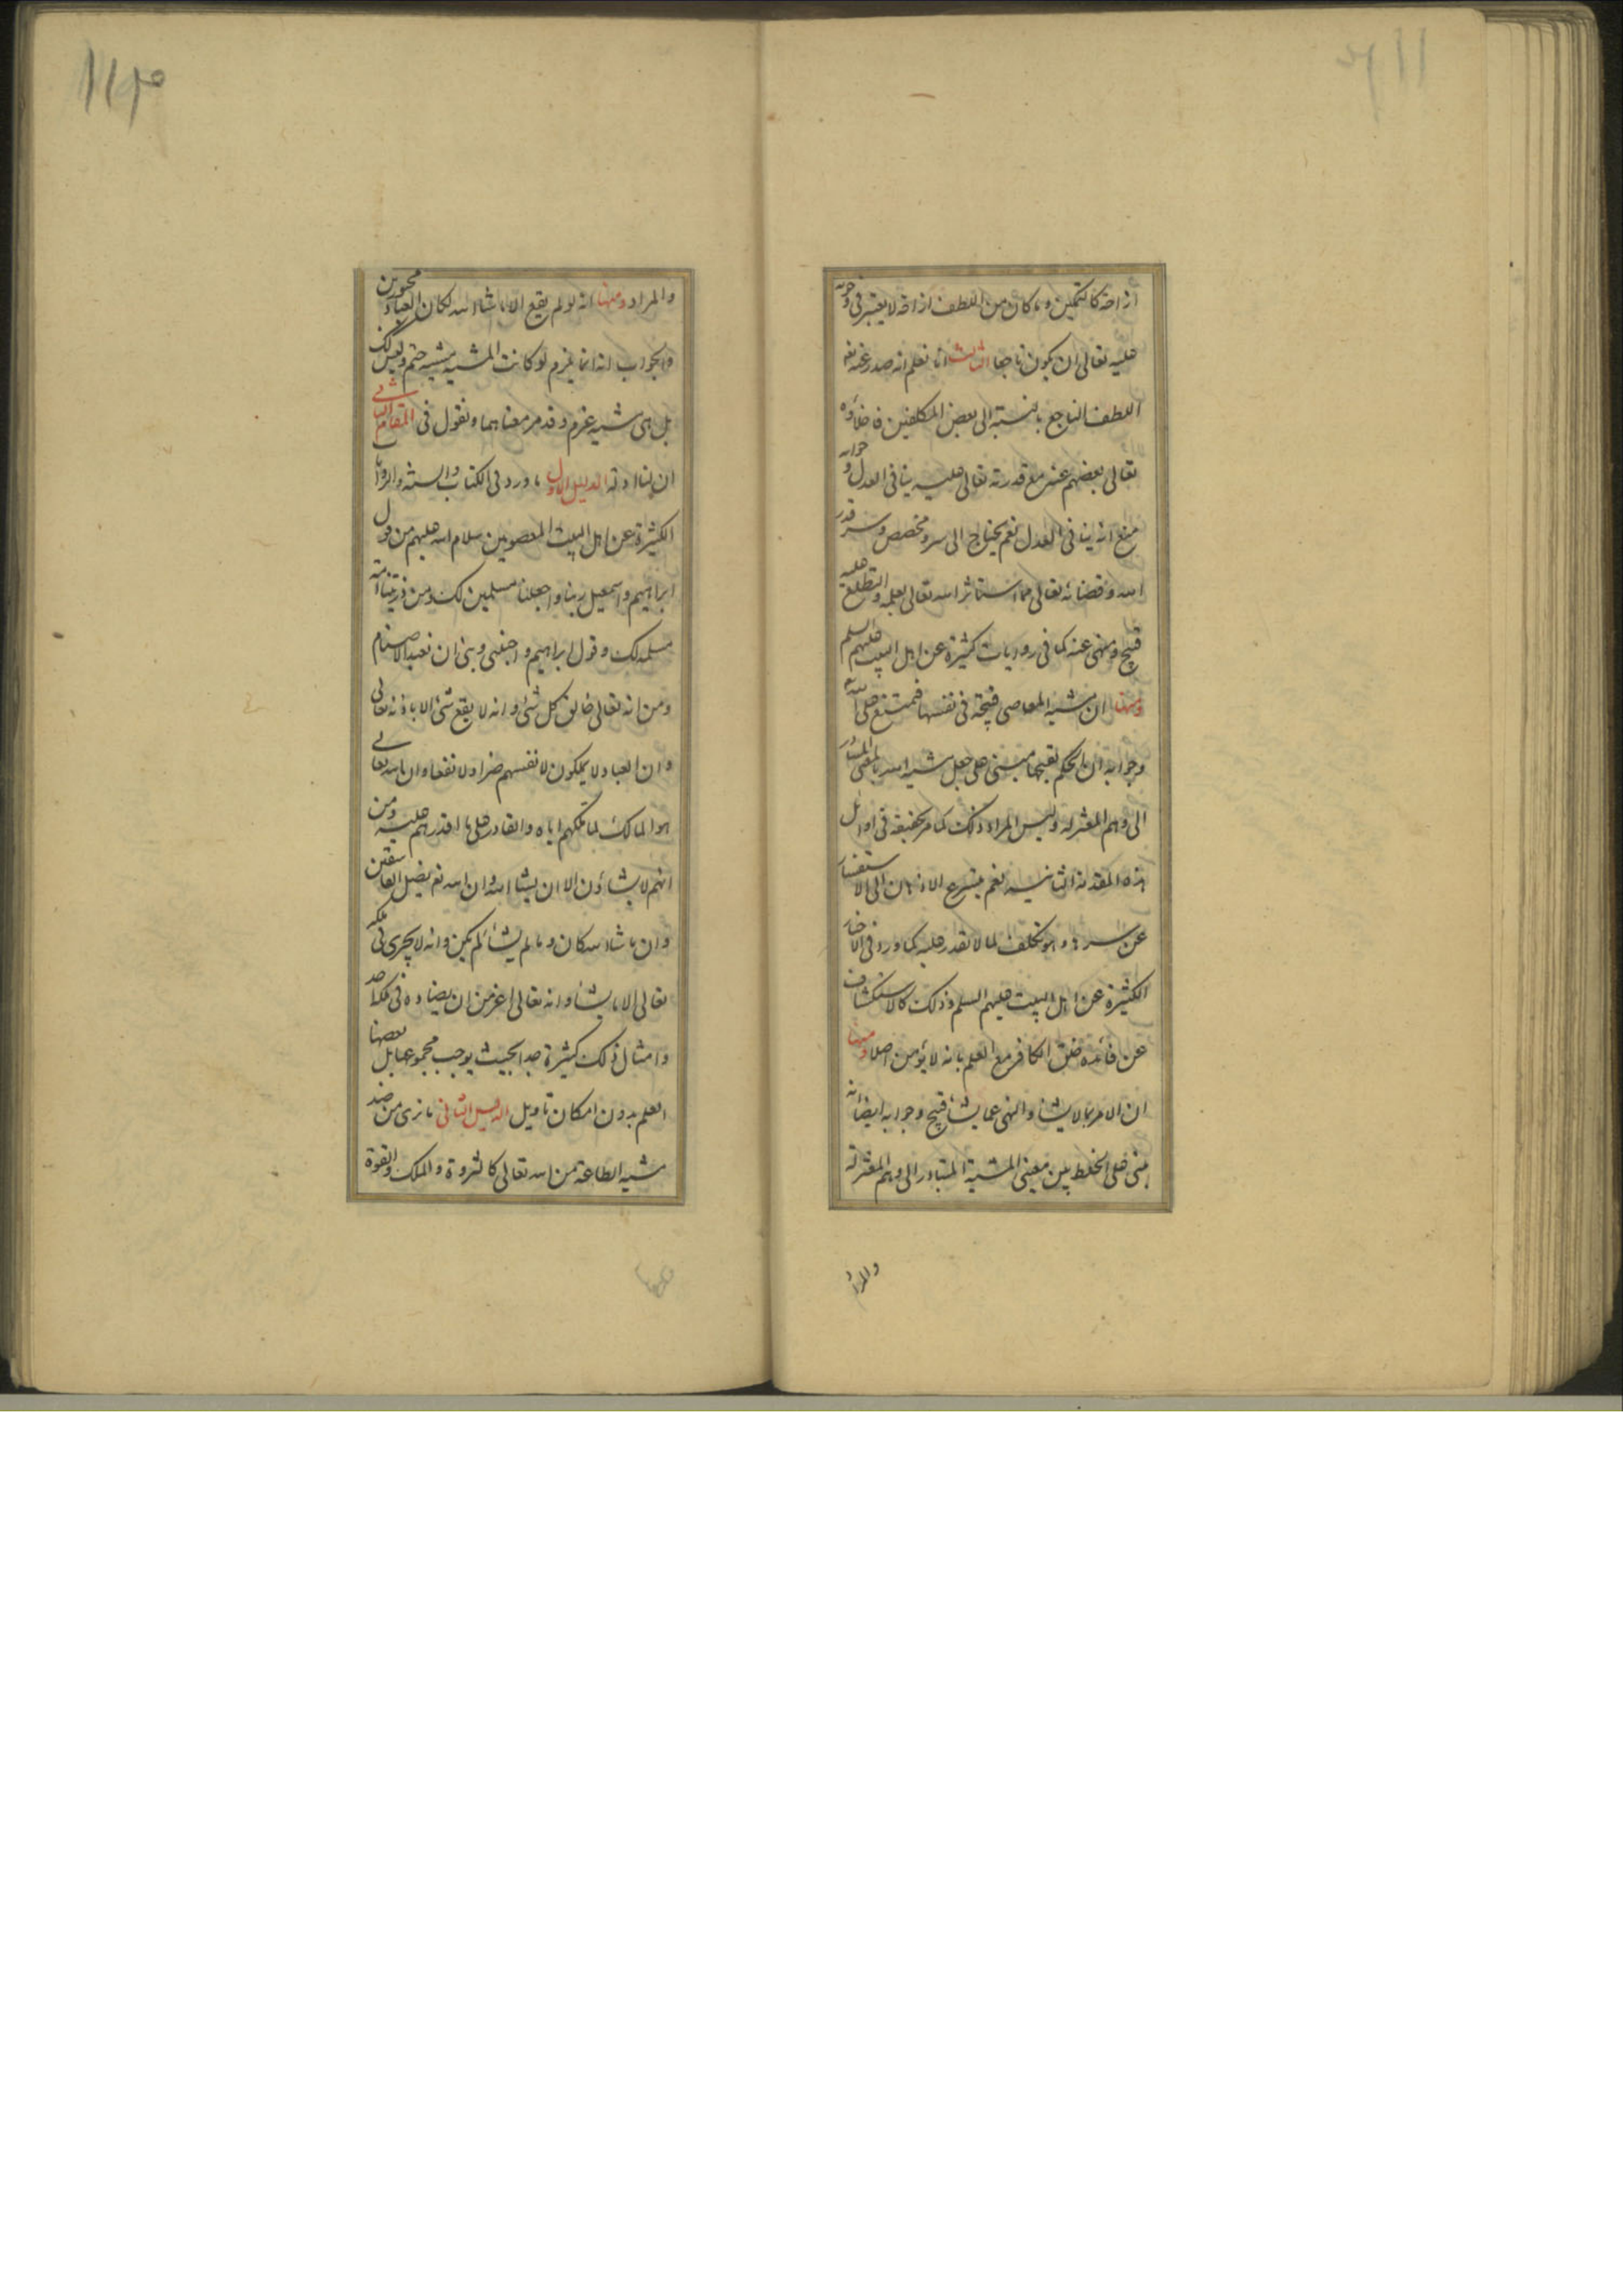 ازاحة كالتمكين و ما كان من اللطف ازاحة لا يعتبر فى وجوبه
عليه تعالى ان يكون ناجعا الثالث انا نعلم انه صدر عنه تعه
اللطف الناجع بالنسبة الى بعض المكلفين فاخلاؤه
تعالى بعضهم عنه مع قدرته تعالى عليه ينافى العدل وجوابه
منع انه ينافى العدل نعم يحتاج الى سر و مخصص و سر قدر
الله و قضائه تعالى مما استاثر الله تعالى بعلمه و التطلع عليه
قبيح و منهى عنه كما فى روايات كثيرة عن اهل البيت عليهم السلم
و منها ان مشية المعاصى قبيحة فى نفسها فيمتنع على الله
و جوابه ان الحكم بقبحها مبتنى على جعل مشية الله بالمعنى المتبادر
الى وهم المعتزلة و ليس المراد ذلك كما مر تحقيقه فى اوائل
هذه المقدمة الثانية نعم يتسرع الاذهان الى الاستفسار
عن سره و هو تكلف لما لا نقدر عليه كما ورد فى الاخبار
الكثيرة عن اهل البيت عليهم السلم و ذلك كالاستكشاف
عن فائدة خلق الكافر مع العلم بانه لا يؤمن اصلا و منها
ان الامر بما لا يشاء و النهى عما يشاء قبيح و جوابه ايضا انه
مبنى على الخلط بين معنى المشية المتبادر الى وهم المعتزلة
والمراد
والمراد و منها انه لو لم يقع الا ما شاء الله لكان العباد مجبورين
والجواب انه انما يلزم لو كانت المشية مشية حتم و ليس كك
بل هى مشية عزم و قد مر معناهما و نقول فى المقام الثانى
ان لنا ادلة الدليل الاول ما ورد فى الكتاب و السنة و الروايات
الكثيرة عن اهل البيت المعصومين سلام الله عليهم من قول
ابراهيم و اسمعيل ربنا و اجعلنا مسلمين لك و من ذريتنا امة
مسلمة لك و قول ابراهيم و اجنبنى و بنى ان نعبد الاصنام
و من انه تعالى خالق كل شئ و انه لا يقع شئ الا باذنه تعالى
و ان العباد لا يملكون لانفسهم ضرا و لا نفعا و ان الله تعالى
هو المالك لما ملكهم اياه و القادر على ما اقدرهم عليه و من
انهم لا يشاؤن الا ان يشاء الله و ان الله تع يضل الفاسقين
و ان ما شاء الله كان و ما لم يشأ لم يكن و انه لا يجرى فى ملكه
تعالى الا ما يشاء و انه تعالى اعز من ان يضاده فى ملكه احد
و امثال ذلك كثيرة جدا بحيث يوجب مجموعها بل بعضها
العلم بدون امكان تاويل الدليل الثانى ما نرى من ضد
مشية الطاعة من الله تعالى كالثروة و الملك و القوة